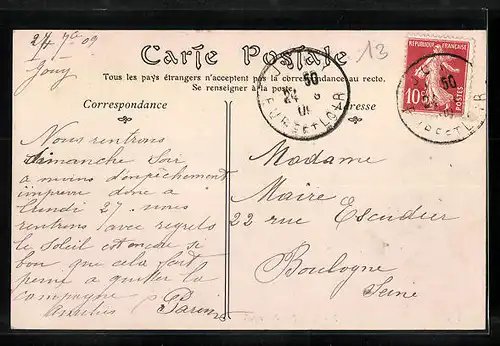 24 7bre 09
Jouy
Carte Postale
13
Tous les pays étrangers n'acceptent pas la correspondance au recto.
Se renseigner à la poste.
Correspondance
Adresse
REPUBLIQUE FRANÇAISE
10c
POSTES
50
24
EURE ET LOIR
50
24
EURE ET LOIR
Nous rentrons
dimanche Soir
a moins d'enpêchement
imprevu donc a
Lundi 27. nous
rentrons avec regrets
le Soleil est encore si
bon que cela fait
peine a quitter la
campagne
Amitiés
Madame
Maire
22 rue Escudier
Boulogne
Seine